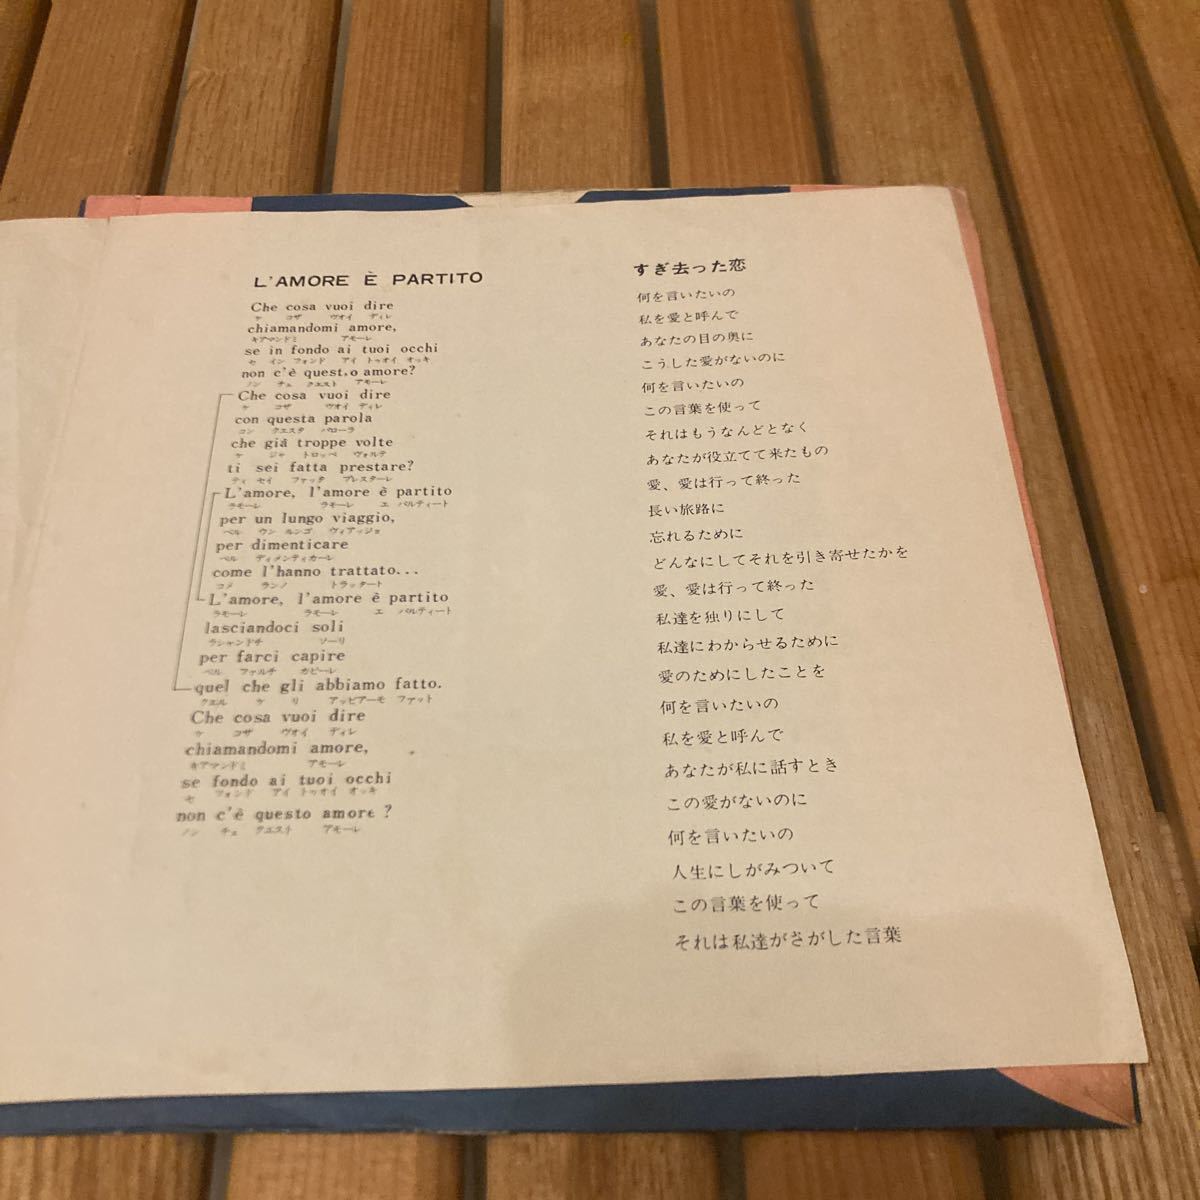 L'AMORE È PARTITO
Che cosa vuoi dire
ケ コザ ヴオイ ディレ
chiamandomi amore,
キアマンドミ アモーレ
se in fondo ai tuoi occhi
セ イン フォンド アイ トゥオイ オッキ
non c'è quest.o amore?
ノン チェ クエスト アモーレ
Che cosa vuoi dire
ケ コザ ヴオイ ディレ
con questa parola
コン クエスタ パローラ
che giá troppe volte
ケ ジャ トロッペ ヴォルテ
ti sei fatta prestare?
ティ セイ ファッタ プレスターレ
L'amore, l'amore è partito
ラモーレ ラモーレ エ パルティート
per un lungo viaggio,
ペル ウン ルンゴ ヴィアッジョ
per dimenticare
ペル ディメンティカーレ
come l'hanno trattato...
コメ ランノ トラッタート
L'amore, l'amore è partito
ラモーレ ラモーレ エ パルティート
lasciandoci soli
ラシャンドチ ソーリ
per farci capire
ペル ファルチ カピーレ
quel che gli abbiamo fatto.
クエル ケ リ アッビアーモ ファット
Che cosa vuoi dire
ケ コザ ヴオイ ディレ
chiamandomi amore,
キアマンドミ アモーレ
se fondo ai tuoi occhi
セ フォンド アイ トゥオイ オッキ
non c'è questo amore ?
ノン チェ クエスト アモーレ
すぎ去った恋
何を言いたいの
私を愛と呼んで
あなたの目の奥に
こうした愛がないのに
何を言いたいの
この言葉を使って
それはもうなんどとなく
あなたが役立てて来たもの
愛、愛は行って終った
長い旅路に
忘れるために
どんなにしてそれを引き寄せたかを
愛、愛は行って終った
私達を独りにして
私達にわからせるために
愛のためにしたことを
何を言いたいの
私を愛と呼んで
あなたが私に話すとき
この愛がないのに
何を言いたいの
人生にしがみついて
この言葉を使って
それは私達がさがした言葉